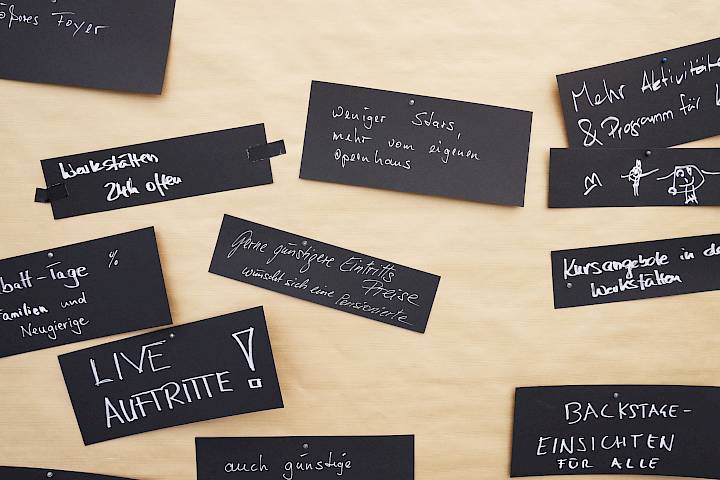 Foyer
Werkstätten
24h offen
weniger Stars,
mehr vom eigenen
Opernhaus
Mehr Aktivitäte
& Programm für
batt-Tage %
Familien und
Neugierige
Gerne günstigere Eintritts
Preise
wünscht sich eine Pensionierte
Kursangebote in de
Werkstätten
LIVE
AUFTRITTE!
BACKSTAGE-
EINSICHTEN
FÜR ALLE
auch günstige